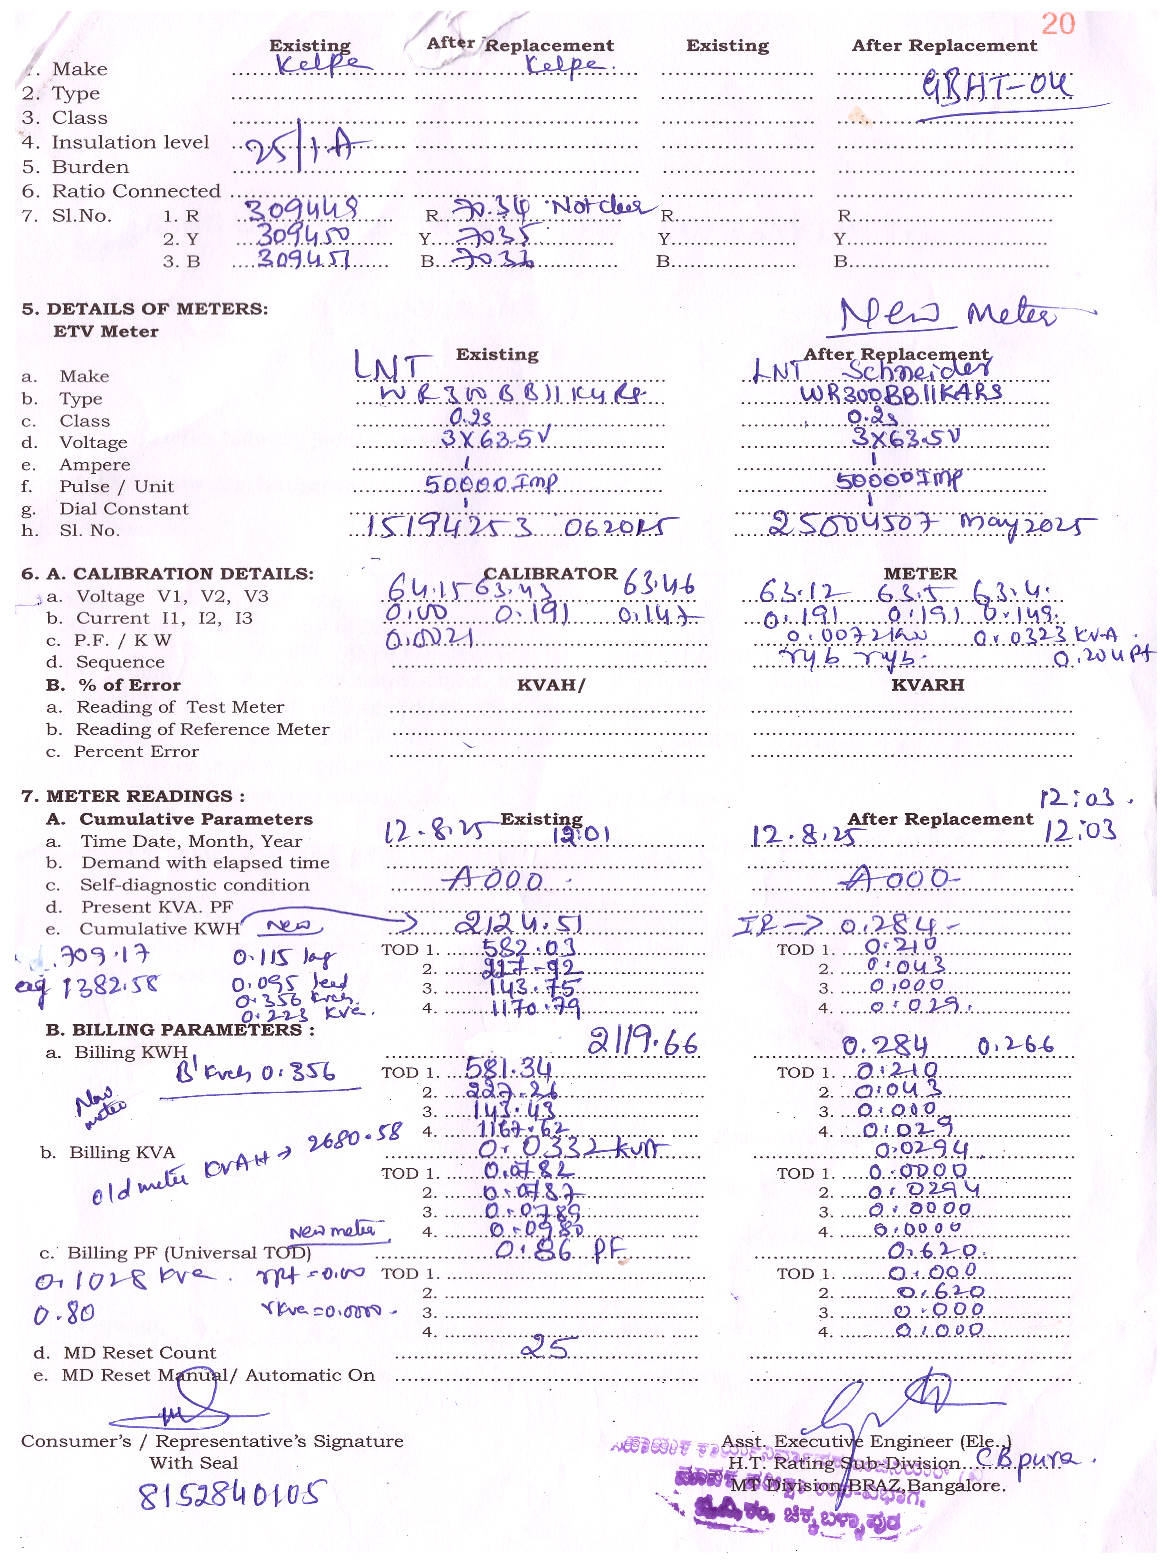 20
Existing After Replacement Existing After Replacement
1. Make Kelpe Kelpe
2. Type GBHT-04
3. Class
4. Insulation level 25/1A
5. Burden
6. Ratio Connected
7. Sl.No. 1. R 309448 R. 7034 Not clear R. R.
2. Y 309450 Y. 7035 Y. Y.
3. B 309451 B. 7036 B. B.
5. DETAILS OF METERS: New Meter
ETV Meter
Existing After Replacement
a. Make LNT LNT Schneider
b. Type WR300BB11K4RS WR300BB11KARS
c. Class 0.2s 0.2s
d. Voltage 3X63.5V 3X63.5V
e. Ampere 1 1
f. Pulse / Unit 50000Imp 50000Imp
g. Dial Constant 1 1
h. Sl. No. 15194253 062015 25004507 May2025
6. A. CALIBRATION DETAILS: CALIBRATOR METER
a. Voltage V1, V2, V3 64.15 63.43 63.46 63.12 63.5 63.4
b. Current I1, I2, I3 0.100 0.191 0.147 0.191 0.191 0.149
c. P.F. / K W 0.0021 0.0072kw 0.0323 KVA
d. Sequence ryb ryb 0.204 Pf
B. % of Error KVAH/ KVARH
a. Reading of Test Meter
b. Reading of Reference Meter
c. Percent Error
7. METER READINGS : 12:03
A. Cumulative Parameters Existing After Replacement
a. Time Date, Month, Year 12.8.25 12:01 12.8.25 12:03
b. Demand with elapsed time
c. Self-diagnostic condition A000 A000
d. Present KVA. PF
e. Cumulative KWH New 2124.51 IR → 0.284
709.17 0.115 lag TOD 1. 582.03 TOD 1. 0.210
1382.58 0.095 lead 2. 227.92 2. 0.043
0.356 kvah 3. 143.75 3. 0.000
0.223 kva. 4. 1170.79 4. 0.029
B. BILLING PARAMETERS :
a. Billing KWH 2119.66 0.284 0.266
B' Kvah 0.356 TOD 1. 581.34 TOD 1. 0.210
New meter 2. 227.26 2. 0.043
3. 143.43 3. 0.000
4. 1167.62 4. 0.029
b. Billing KVA 0.0332 kva 0.0294
old meter KVAH → 2680.58 TOD 1. 0.0782 TOD 1. 0.0000
2. 0.0787 2. 0.0294
3. 0.0789 3. 0.0000
New meter 4. 0.0980 4. 0.0000
c. Billing PF (Universal TOD) 0.86 PF 0.620
0.1028 Kva. rpf = 0.00 TOD 1. TOD 1. 0.000
0.80 rKva = 0.0000 2. 2. 0.620
3. 3. 0.000
4. 4. 0.000
d. MD Reset Count 25
e. MD Reset Manual/ Automatic On
Consumer's / Representative's Signature Asst. Executive Engineer (Ele.,)
With Seal H.T. Rating Sub-Division CBpura.
8152840105 MT Division, BRAZ, Bangalore.
ಚಿಕ್ಕಬಳ್ಳಾಪುರ